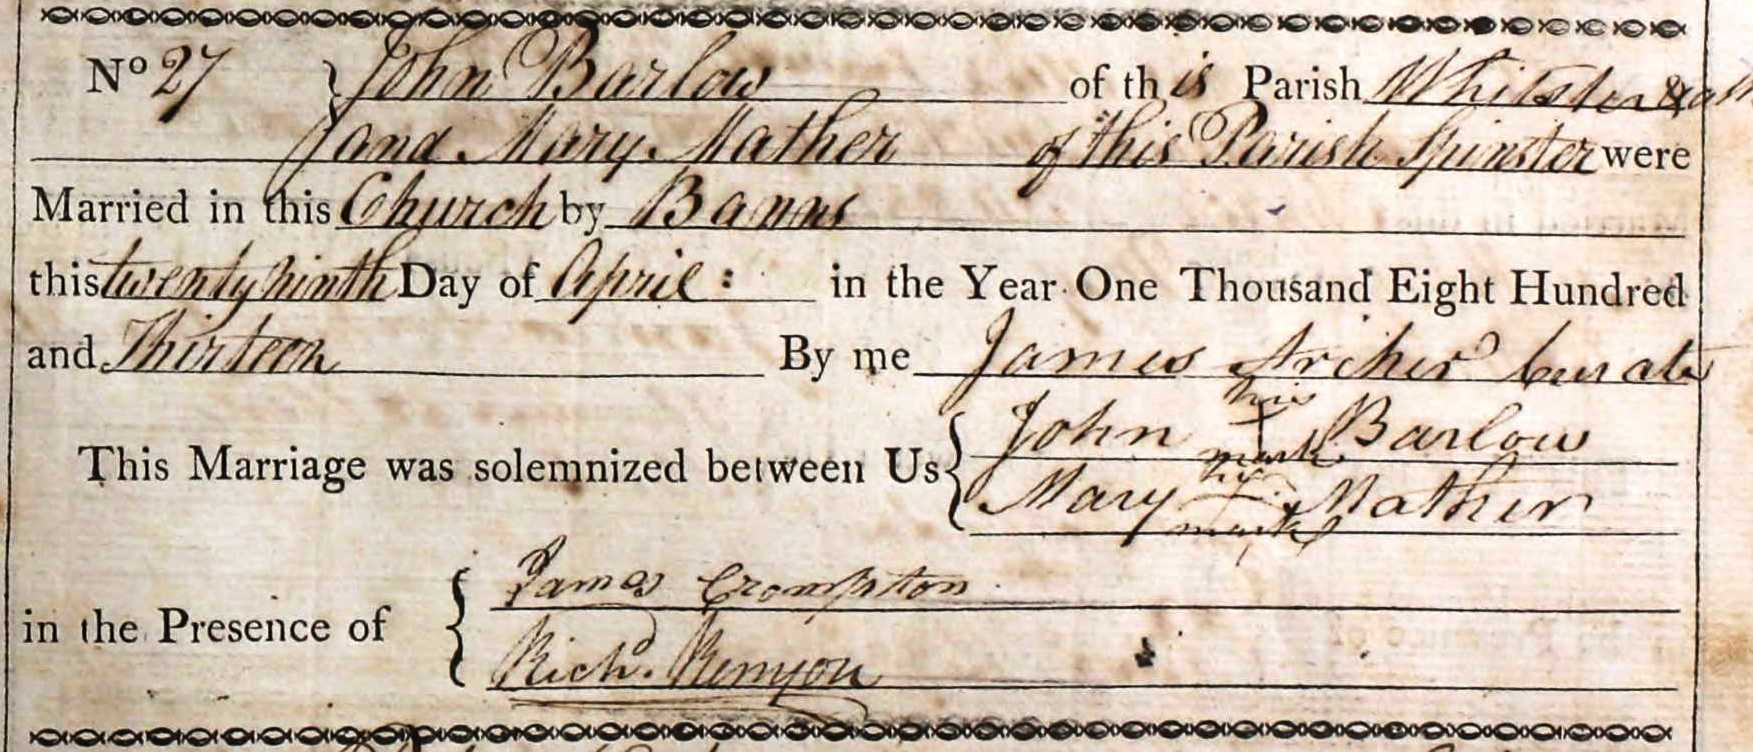 No 27 John Barlow of this Parish Whitster &
and Mary Mather of this Parish Spinster were
Married in this Church by Banns
this twenty ninth Day of April : in the Year One Thousand Eight Hundred
and Thirteen By me James Archer Curate
his
This Marriage was solemnized between Us John + Barlow
mark
Mary Mather
mark
James Crompton
in the Presence of
Richd. Kenyon